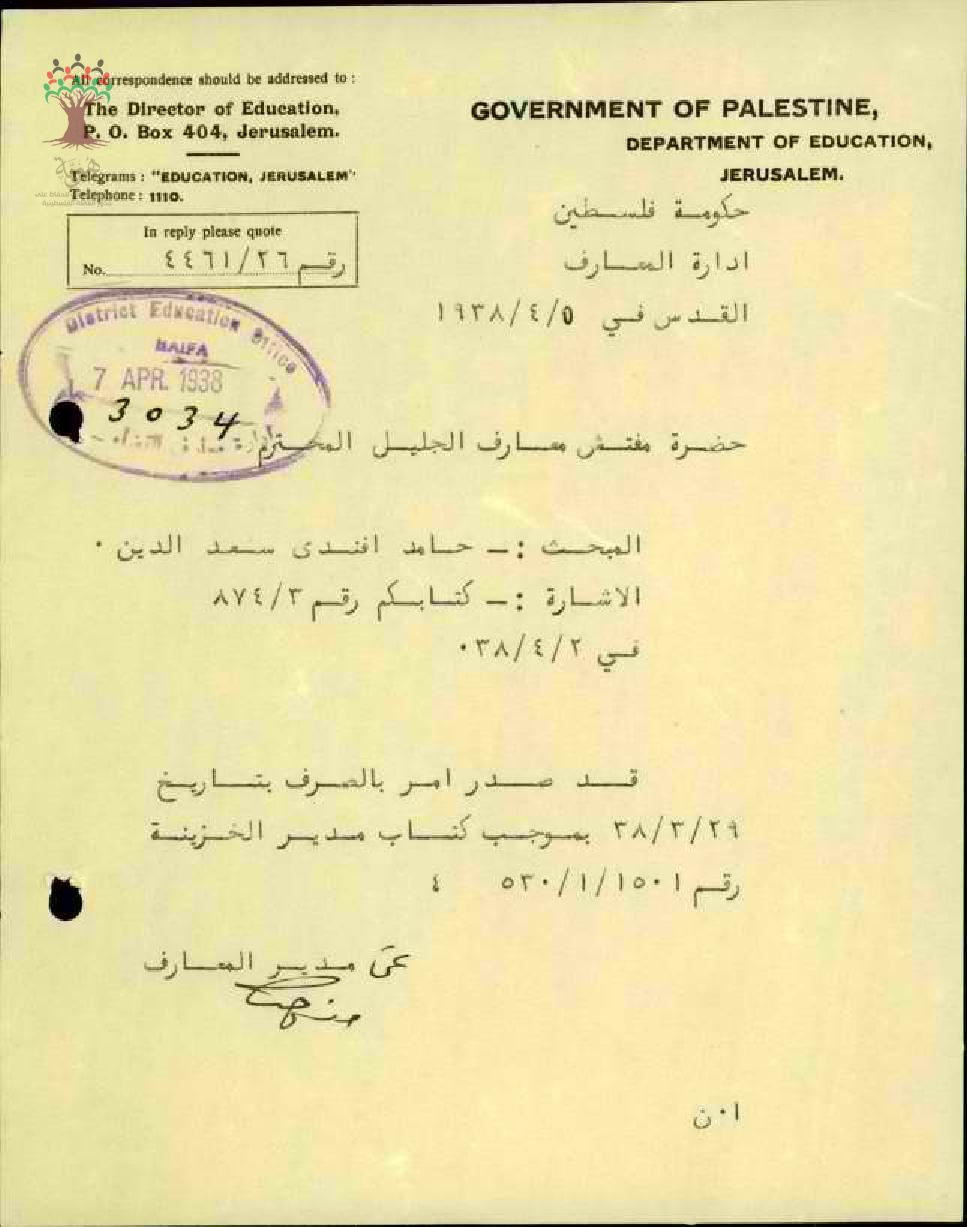 All correspondence should be addressed to :
The Director of Education,
P. O. Box 404, Jerusalem.
Telegrams : "EDUCATION, JERUSALEM"
Telephone : 1110.
In reply please quote
No. رقم ٤٤٦١/٢٦
GOVERNMENT OF PALESTINE,
DEPARTMENT OF EDUCATION,
JERUSALEM.
حكومة فلسطين
ادارة المعارف
القدس في ١٩٣٨/٤/٥
District Education Office
HAIFA
7 APR. 1938
3034
حضرة مفتش معارف الجليل المحترم
المبحث :- حامد افندى سعد الدين ٠
الاشارة :- كتابكم رقم ٨٧٤/٣
في ٣٨/٤/٢ ٠
قد صدر امر بالصرف بتاريخ
٣٨/٣/٢٩ بموجب كتاب مدير الخزينة
رقم ٥٣٠/١/١٥٠١ ٤
عن مدير المعارف
ا٠ن